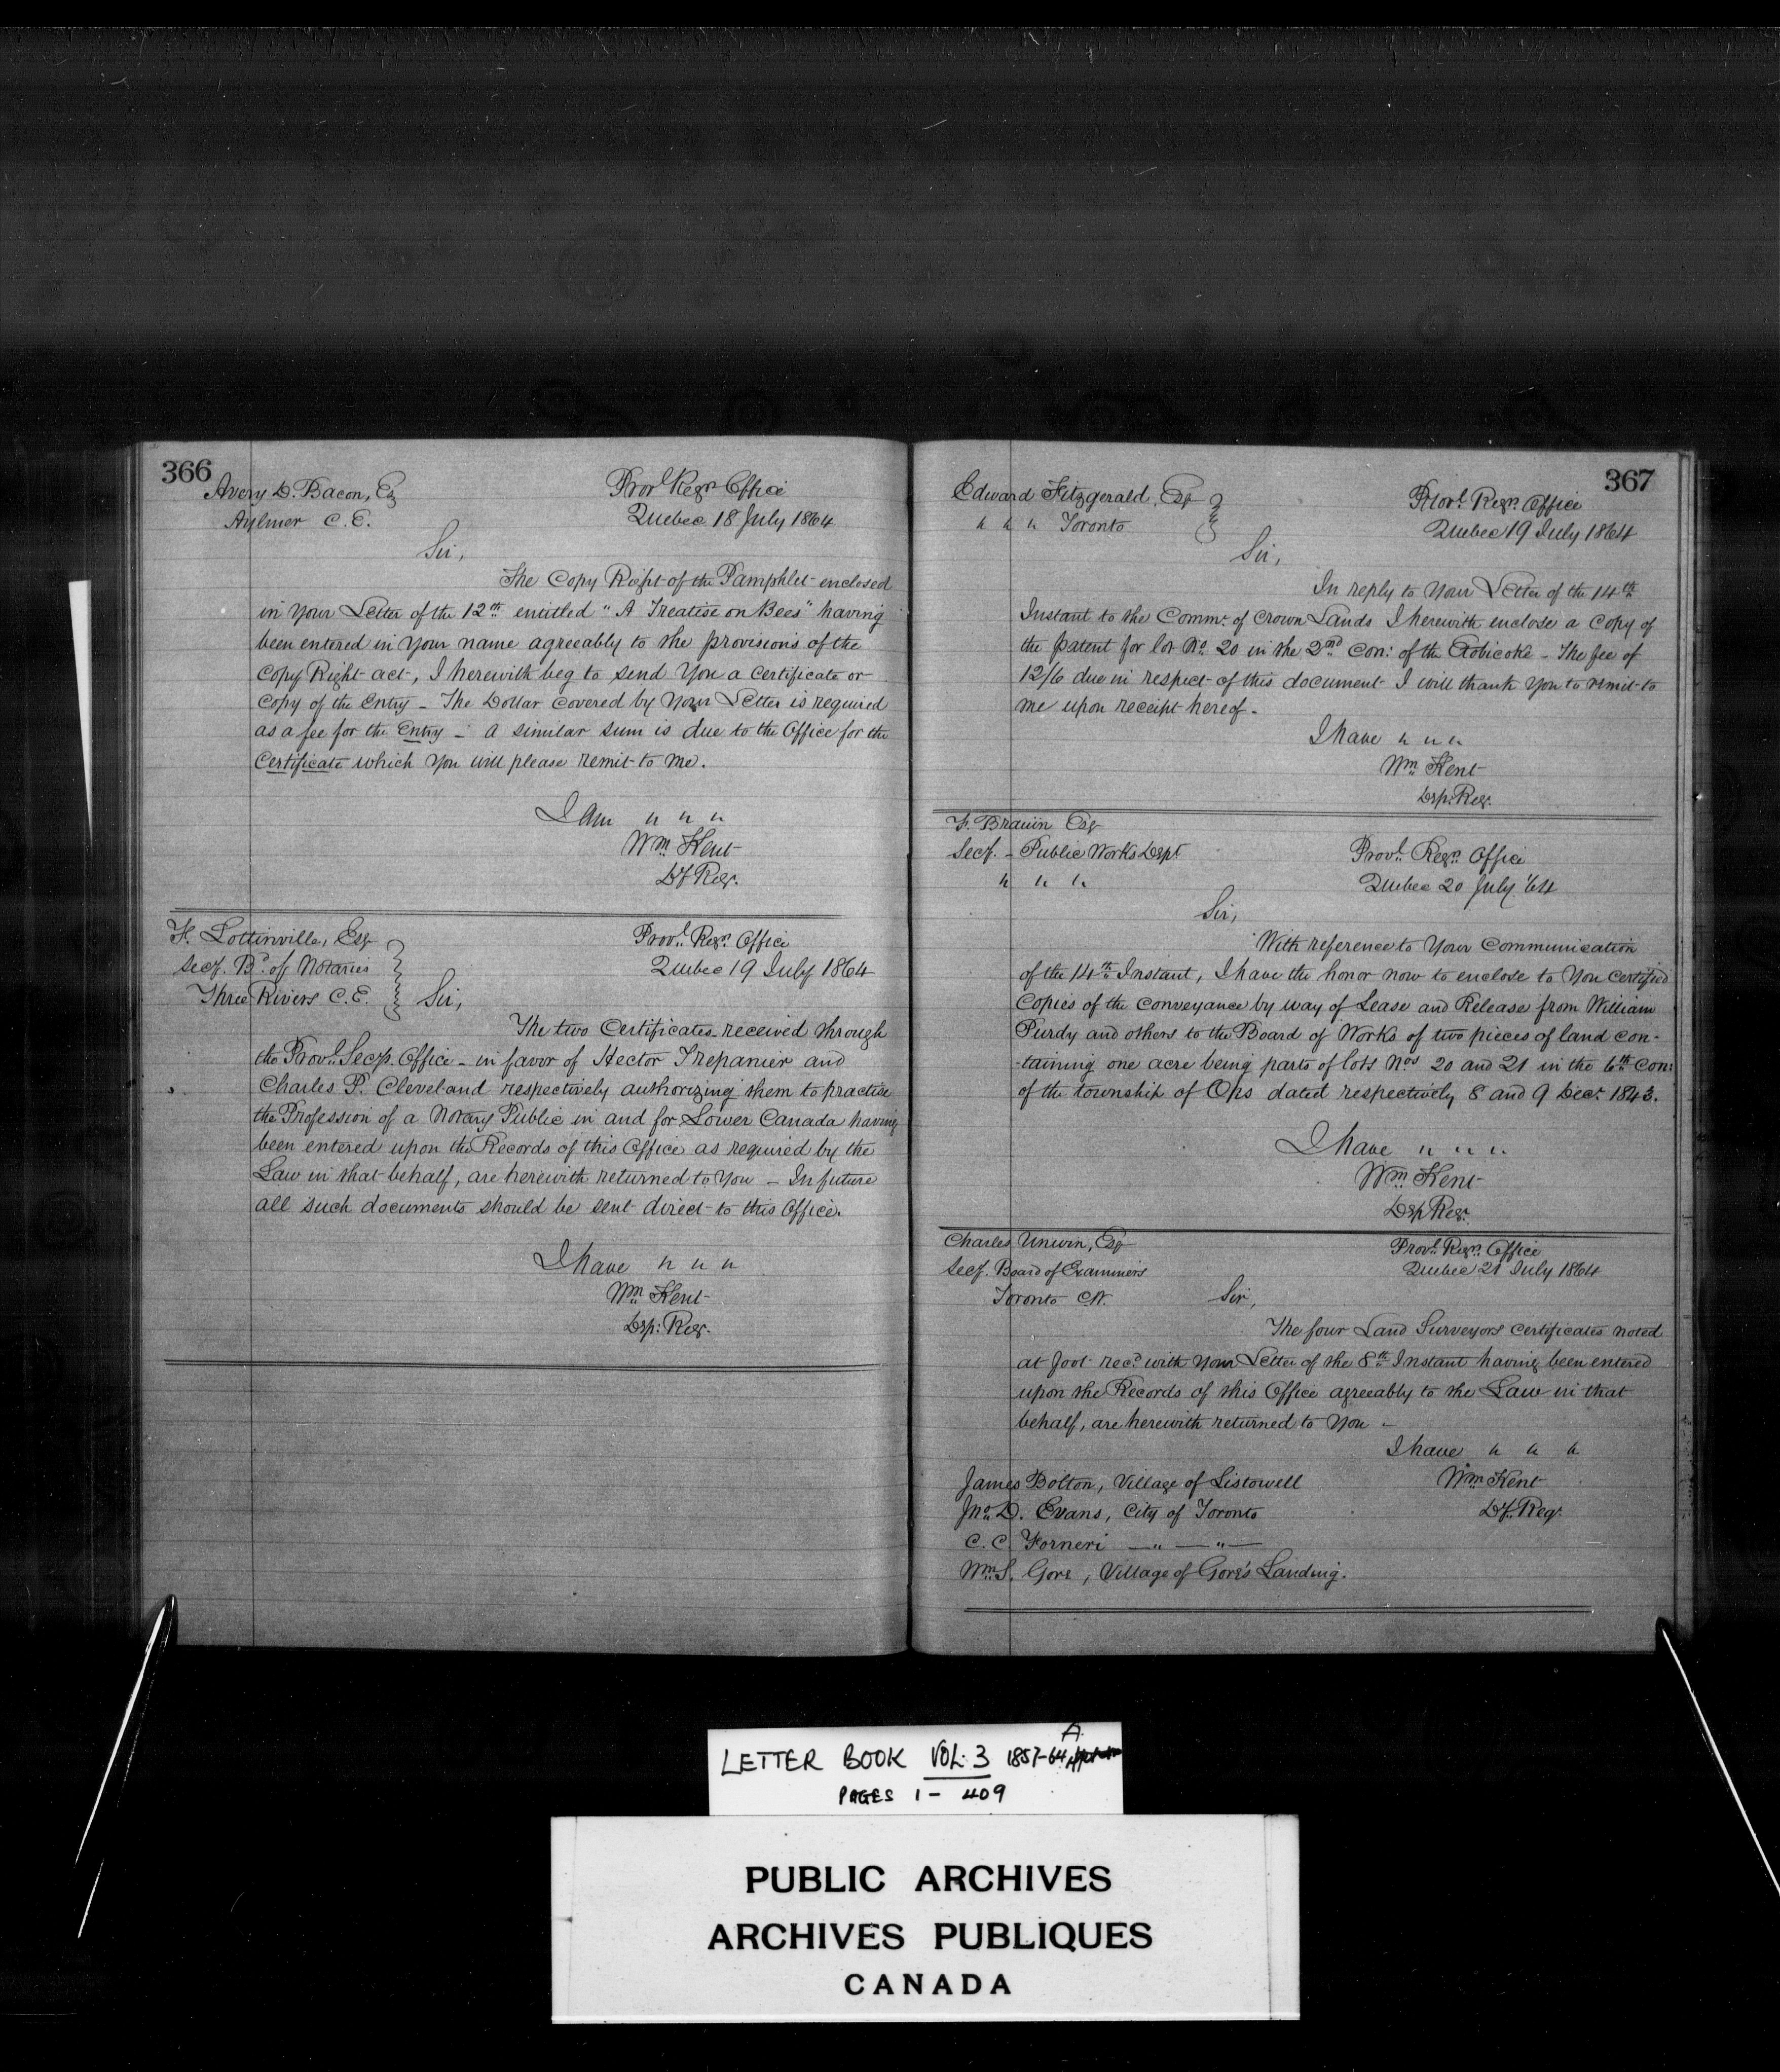 366
Avery D. Bacon, Esq
Aylmer C.E.
Provl. Regrs. Office
Quebec 18 July 1864
Sir,
The Copy Right of the Pamphlet enclosed
in Your Letter of the 12th entitled "A Treatise on Bees" having
been entered in Your name agreeably to the provisions of the
Copy Right act, I herewith beg to send You a Certificate or
Copy of the Entry – The Dollar covered by Your Letter is required
as a fee for the Entry – a similar sum is due to the Office for the
Certificate which You will please remit to me.
I am " " "
Wm Kent
Dy Regr.
F. Lottinville, Esq
Secy. Bd. of Notaries
Three Rivers C.E.
Provl. Regrs. Office
Quebec 19 July 1864
Sir,
The two Certificates received through
the Provl. Secys. Office – in favor of Hector Trepanier and
Charles P. Cleveland respectively authorizing them to practise
the Profession of a Notary Public in and for Lower Canada having
been entered upon the Records of this Office as required by the
Law in that behalf, are herewith returned to You – In future
all such documents should be sent direct to this Office.
I have " " "
Wm Kent
Dep: Regr.
367
Edward Fitzgerald, Esq
" " " Toronto
Provl. Regrs. Office
Quebec 19 July 1864
Sir,
In reply to Your Letter of the 14th
Instant to the Commr. of Crown Lands I herewith enclose a Copy of
the patent for lot No. 20 in the 2nd Con: of the Etobicoke – The fee of
12/6 due in respect of this document I will thank You to remit to
me upon receipt hereof –
I have " " "
Wm Kent
Dep: Regr.
F. Braun Esq
Secy. – Public Works Dept
" " "
Provl. Regrs. Office
Quebec 20 July '64
Sir,
With reference to Your Communication
of the 14th Instant, I have the honor now to enclose to You Certified
Copies of the Conveyance by way of Lease and Release from William
Purdy and others to the Board of Works of two pieces of land con-
-taining one acre being parts of lots Nos 20 and 21 in the 6th Con:
of the township of Ops dated respectively 8 and 9 Decr. 1843.
I have " " "
Wm Kent
Dep Regr.
Charles Unwin, Esq
Secy. Board of Examiners
Toronto CW.
Provl. Regrs. Office
Quebec 21 July 1864
Sir,
The four Land Surveyors Certificates noted
at foot recd. with Your Letter of the 8th Instant having been entered
upon the Records of this Office agreeably to the Law in that
behalf, are herewith returned to You –
I have " " "
Wm Kent
Dy. Regr.
James Bolton, Village of Listowell
Jno. D. Evans, City of Toronto
C. C. Forneri — " — " —
Wm S. Gore, Village of Gore's Landing.
LETTER BOOK VOL. 3 1857-64 A
PAGES 1 – 409
PUBLIC ARCHIVES
ARCHIVES PUBLIQUES
CANADA